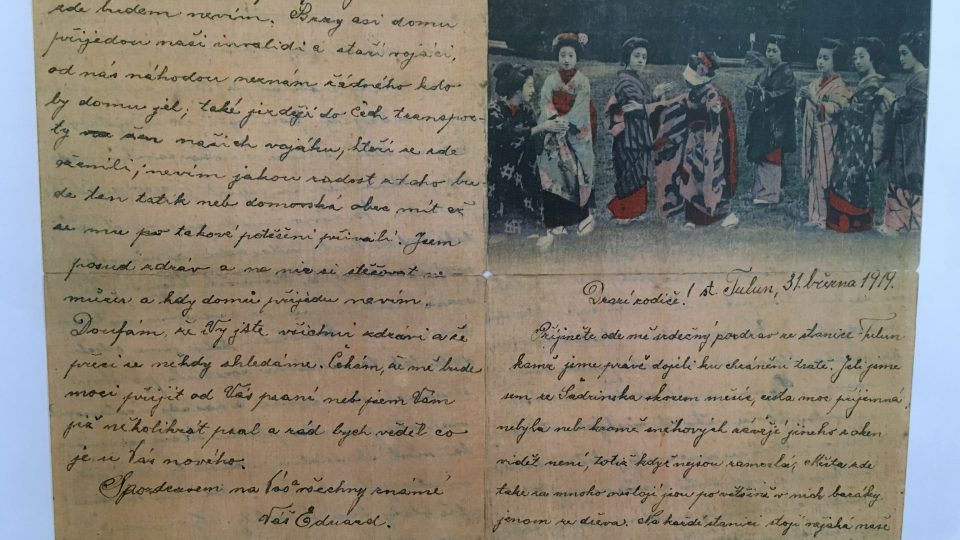 zde budem nevím. Brzy asi domu
přijedou naši invalidi a staří vojáci,
od nás náhodou neznám žádného kdo
by domu jel; také jezdějí do Čech transpor-
ty našich vojáku, kteří se zde
oženili; nevím jakou radost z toho bu-
de ten tatík neb domovská obec mít až
se mu po takové potěšení přivalí. Jsem
posud zdráv a na nic si stěžovat ne
můžu a kdy domů přijedu nevím.
Doufám, že Vy jste všichni zdrávi a že
přeci se někdy shledáme. Čekám, že mě bude
moci přijít od Vás psaní neb jsem Vám
již několikrát psal a rád bych věděl co
je u Vás nového.
S pozdravem na Vás a všechny známé
Váš Eduard.
Drazí rodiče! st. Tulun, 31. března 1919.
Přijměte ode mě srdečný pozdrav ze stanice Tulun
kamž jsme právě dojeli ku chránění tratě. Jeli jsme
sem ze Šadrinska skorem měsíc, cesta moc příjemná
nebyla neb kromě sněhových závějí jiného z oken
vidět není, totiž když nejsou zamrzlá; Města zde
také za mnoho nestojí jsou po většině v nich baráky
jenom ze dřeva. Na každé stanici stojí vojska naše